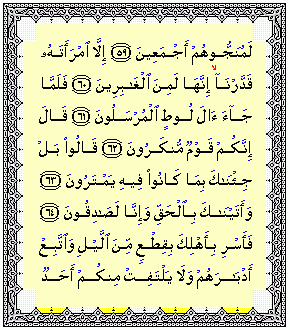 لَمُنَجُّوهُمْ أَجْمَعِينَ ٥٩ إِلَّا ٱمْرَأَتَهُۥ
قَدَّرْنَآ إِنَّهَا لَمِنَ ٱلْغَـٰبِرِينَ ٦٠ فَلَمَّا
جَآءَ ءَالَ لُوطٍ ٱلْمُرْسَلُونَ ٦١ قَالَ
إِنَّكُمْ قَوْمٌ مُّنكَرُونَ ٦٢ قَالُوا۟ بَلْ
جِئْنَـٰكَ بِمَا كَانُوا۟ فِيهِ يَمْتَرُونَ ٦٣
وَأَتَيْنَـٰكَ بِٱلْحَقِّ وَإِنَّا لَصَـٰدِقُونَ ٦٤
فَأَسْرِ بِأَهْلِكَ بِقِطْعٍ مِّنَ ٱلَّيْلِ وَٱتَّبِعْ
أَدْبَـٰرَهُمْ وَلَا يَلْتَفِتْ مِنكُمْ أَحَدٌ